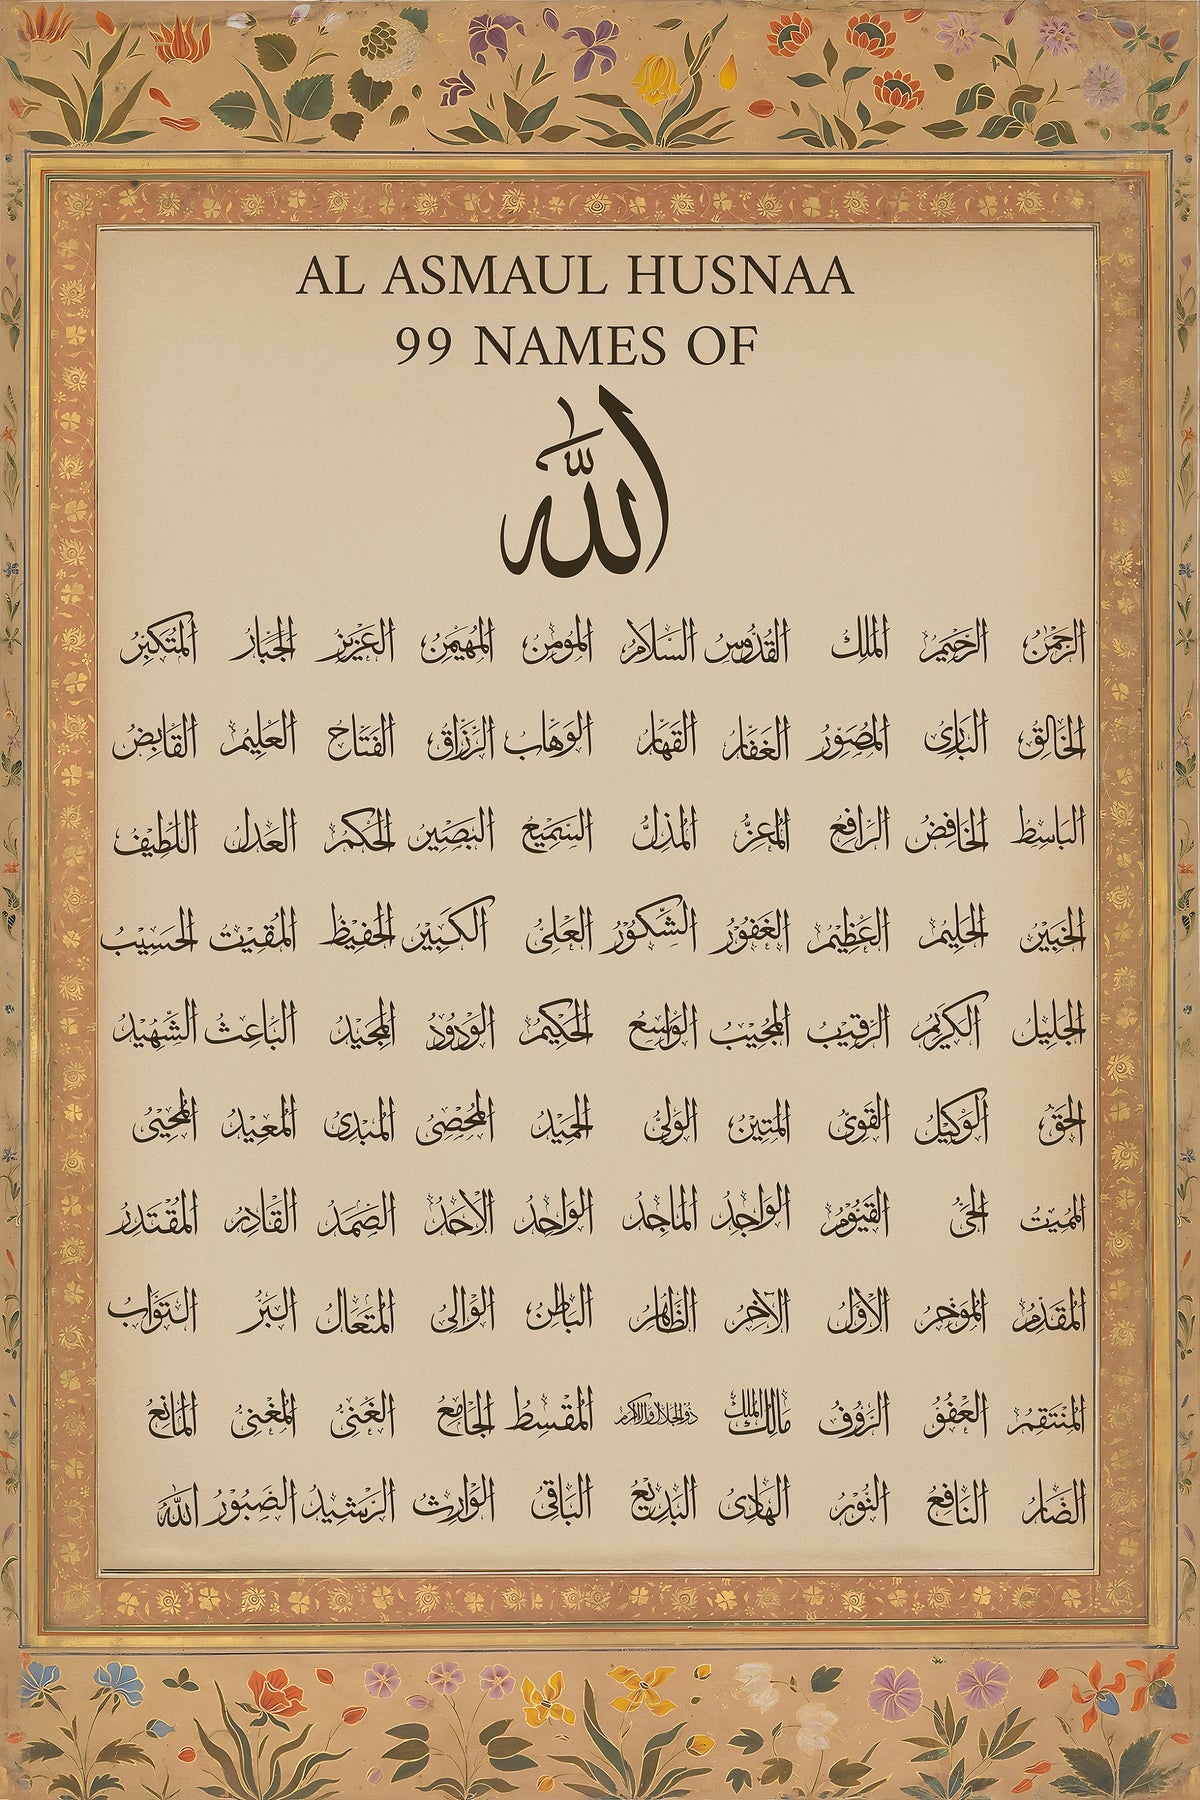 AL ASMAUL HUSNAA
99 NAMES OF
الله
الرحمن الرحيم الملك القدوس السلام المؤمن المهيمن العزيز الجبار المتكبر
الخالق البارئ المصور الغفار القهار الوهاب الرزاق الفتاح العليم القابض
الباسط الخافض الرافع المعز المذل السميع البصير الحكم العدل اللطيف
الخبير الحليم العظيم الغفور الشكور العلى الكبير الحفيظ المقيت الحسيب
الجليل الكريم الرقيب المجيب الواسع الحكيم الودود المجيد الباعث الشهيد
الحق الوكيل القوى المتين الولى الحميد المحصى المبدئ المعيد المحيى
المميت الحى القيوم الواجد الماجد الواحد الأحد الصمد القادر المقتدر
المقدم المؤخر الأول الآخر الظاهر الباطن الوالى المتعال البر التواب
المنتقم العفو الرؤوف مالك الملك ذو الجلال والإكرام المقسط الجامع الغنى المغنى المانع
الضار النافع النور الهادى البديع الباقى الوارث الرشيد الصبور الله